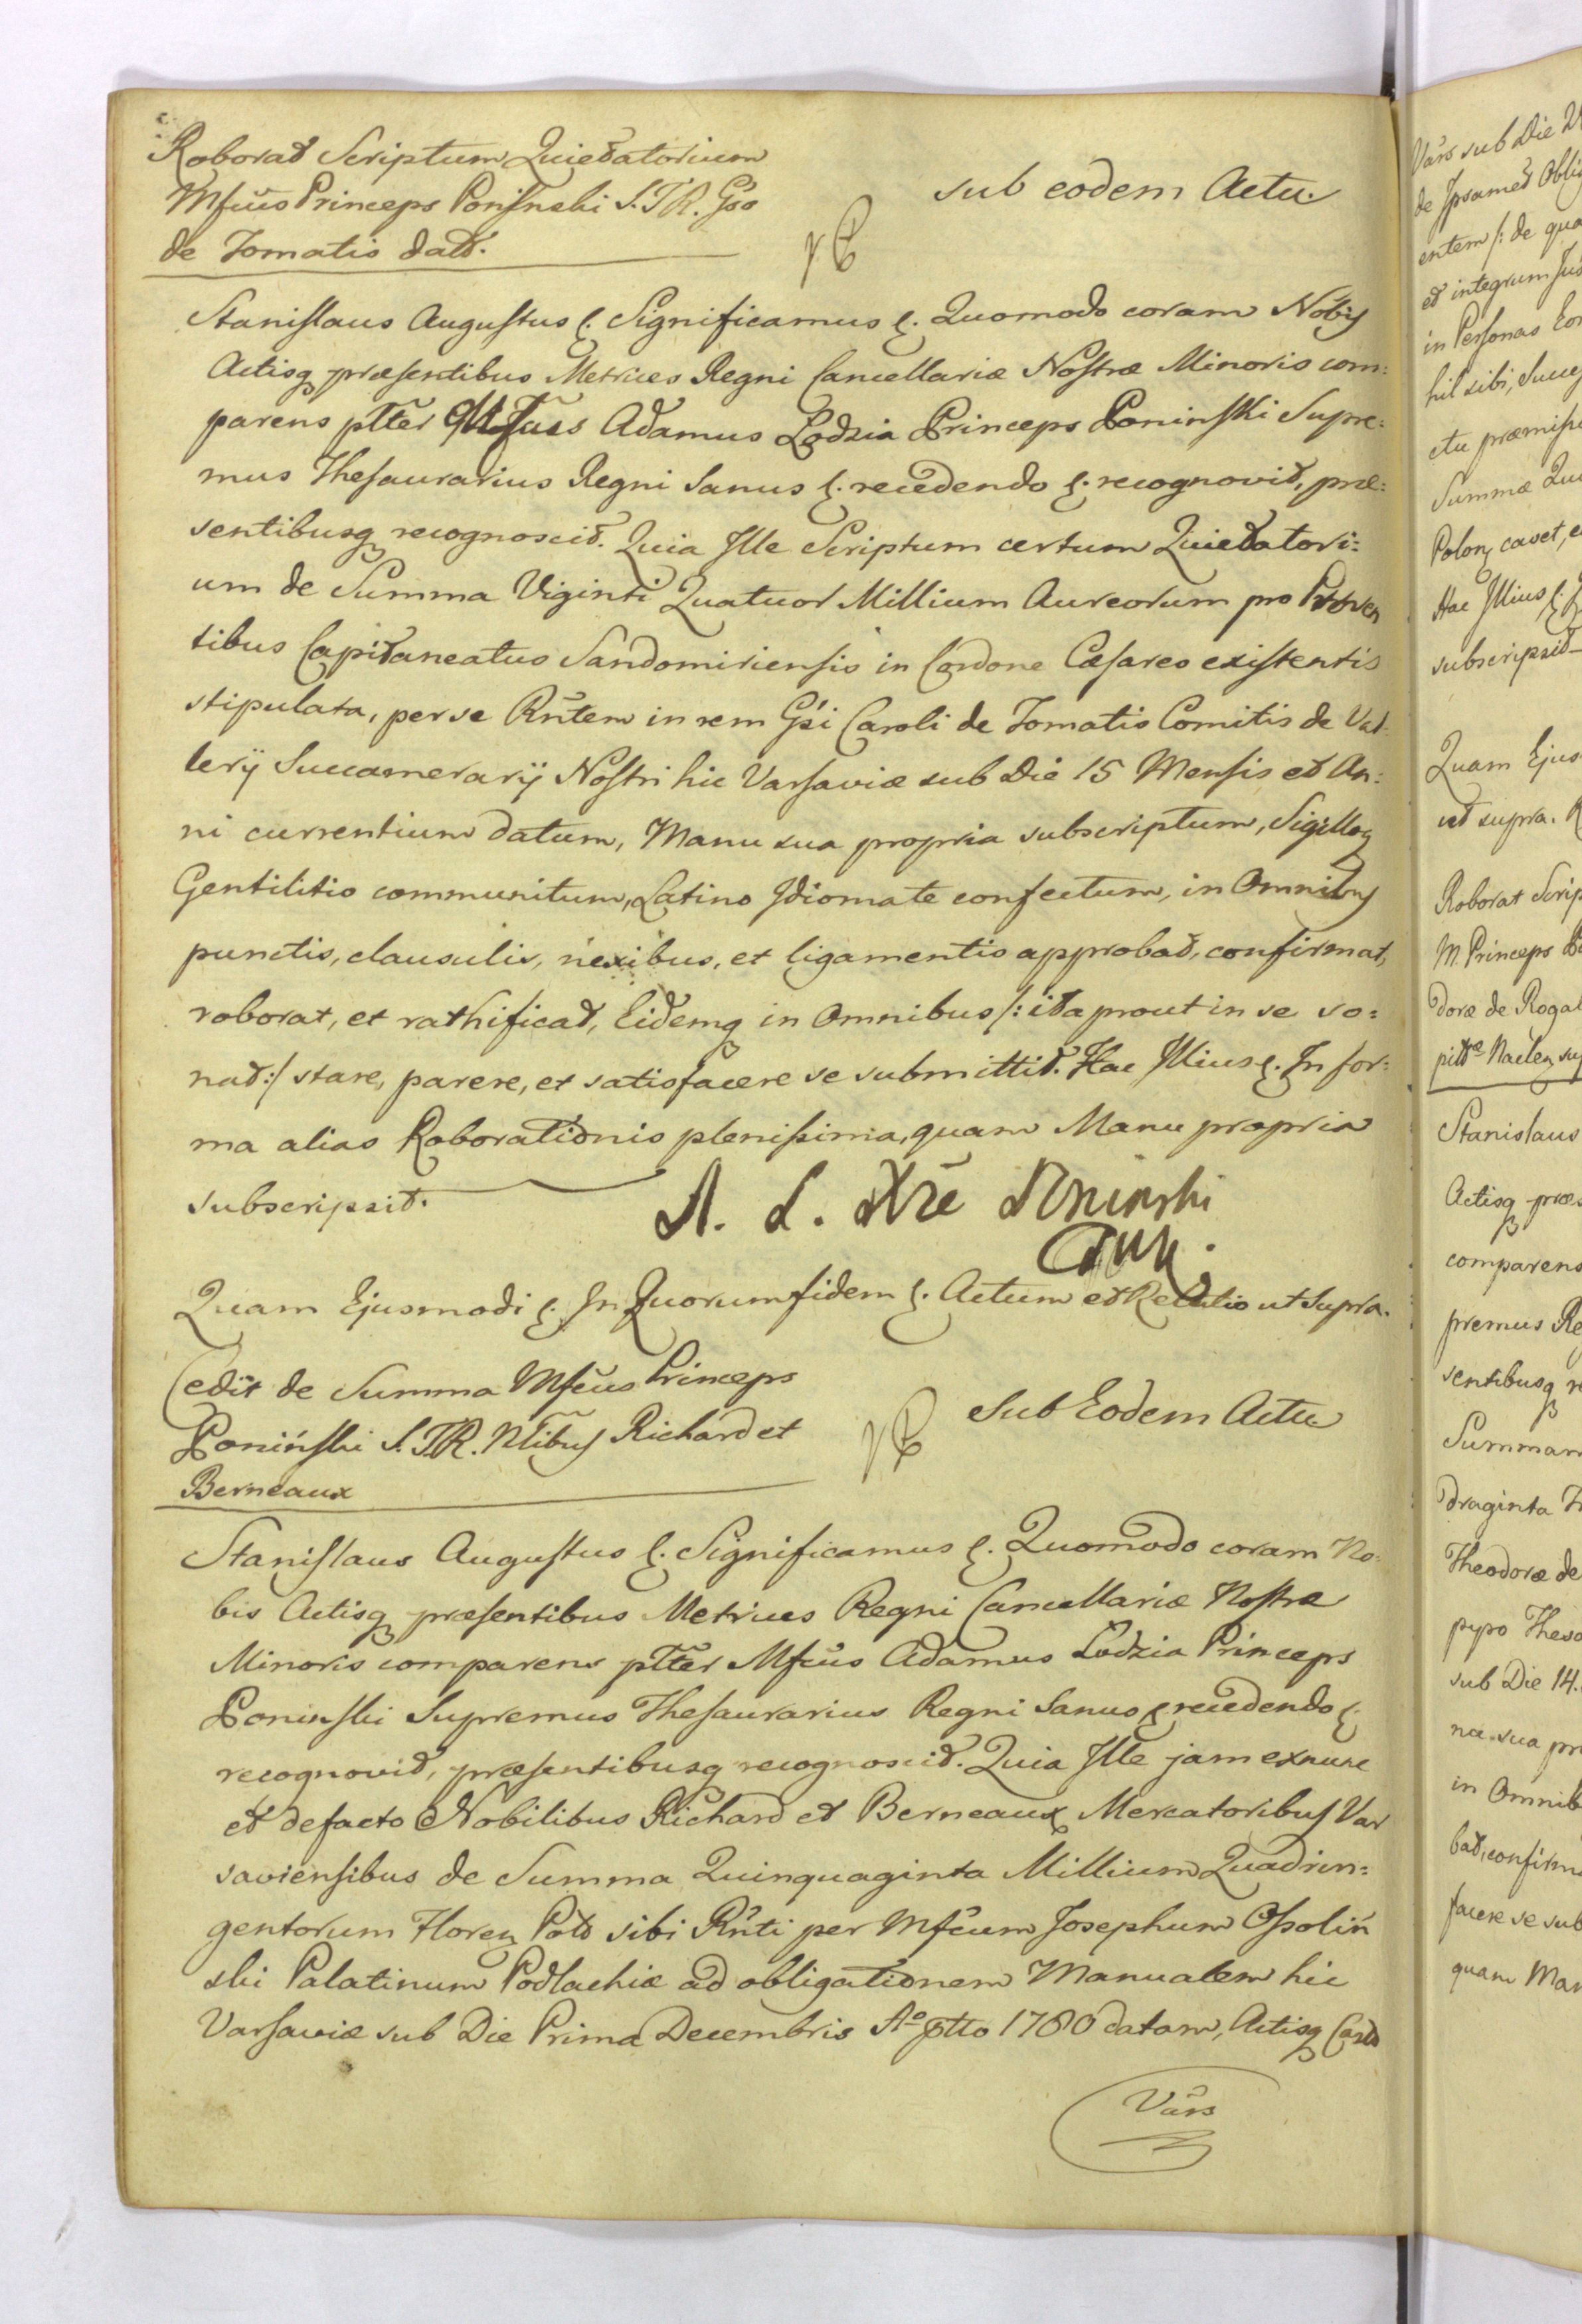 Roborat Scriptum Quietatorium
Mfcus Princeps Poninski S. T. R. Gso
de Tomatis datt.
sub eodem Actu.
Stanislaus Augustus &. Significamus &. Quomodo coram Nobis
Actisq præsentibus Metrices Regni Cancellariæ Nostræ Minoris com:
parens pltter Mfcus Adamus Lodzia Princeps Poninski Supre:
mus Thesaurarius Regni Sanus &. recedendo &. recognovit, præ:
sentibusq recognoscit. Quia Ille Scriptum certum Quietatori:
um de Summa Viginti Quatuor Millium Aureorum pro Proven
tibus Capitaneatus Sandomiriensis in Cordone Cæsareo existentis
stipulata, per se Rntem in rem Gsi Caroli de Tomatis Comitis de Val
lerÿ Succamerarÿ Nostri hic Varsaviæ sub Die 15 Mensis et An:
ni currentium datum, Manu sua propria subscriptum, Sigilloq
Gentilitio communitum, Latino Idiomate confectum, in Omnibus
punctis, clausulis, nexibus, et ligamentis approbat, confirmat,
roborat, et rathificat, Eidemq in Omnibus /: ita prout in se so:
nat :/ stare, parere, et satisfacere se submittit. Hac Illius &. In for:
ma alias Roborationis plenissima, quam Manu propria
subscripsit.
A. L. Xże Poninski
Quam Ejusmodi &. In Quorum fidem &. Actum et Relatio ut supra.
Cedit de Summa Mfcus Princeps
Poniński S. T. R. Nlibus Richard et
Berneaux
Sub Eodem Actu
Stanislaus Augustus &. Significamus &. Quomodo coram No:
bis Actisq præsentibus Metrices Regni Cancellariæ Nostræ
Minoris comparens pltter Mfcus Adamus Lodzia Princeps
Poninski Supremus Thesaurarius Regni Sanus & recedendo &.
recognovit, præsentibusq recognoscit. Quia Ille jam exnunc
et defacto Nobilibus Richard et Berneaux Mercatoribus Var
saviensibus de Summa Quinquaginta Millium Quadrin:
gentorum Floren Pold sibi Rnti per Mfcum Josephum Ossoliń
ski Palatinum Podlachiæ ad obligationem Manualem hic
Varsaviæ sub Die Prima Decembris Ao pttto 1780 datam, Actisq Castr
Vars
Vars sub Die
de Ipsamet Obli
entem /: de qua
et integrum Jus
in Personas Eor
hil sibi, Succes
ctu præmiss
Summæ Qu
Polon cavet, e
Hac Illius &.
subscripsit
Quam Ejus
ut supra.
Roborat Scrip
M. Princeps Po
doræ de Rogal
Stanislaus
Actisq præs
comparens
premus Re
sentibusq re
Summam
draginta
Theodoræ de
sub Die 14.
na sua pr
in Omnib
bat, confirm
facere se sub
quam Man